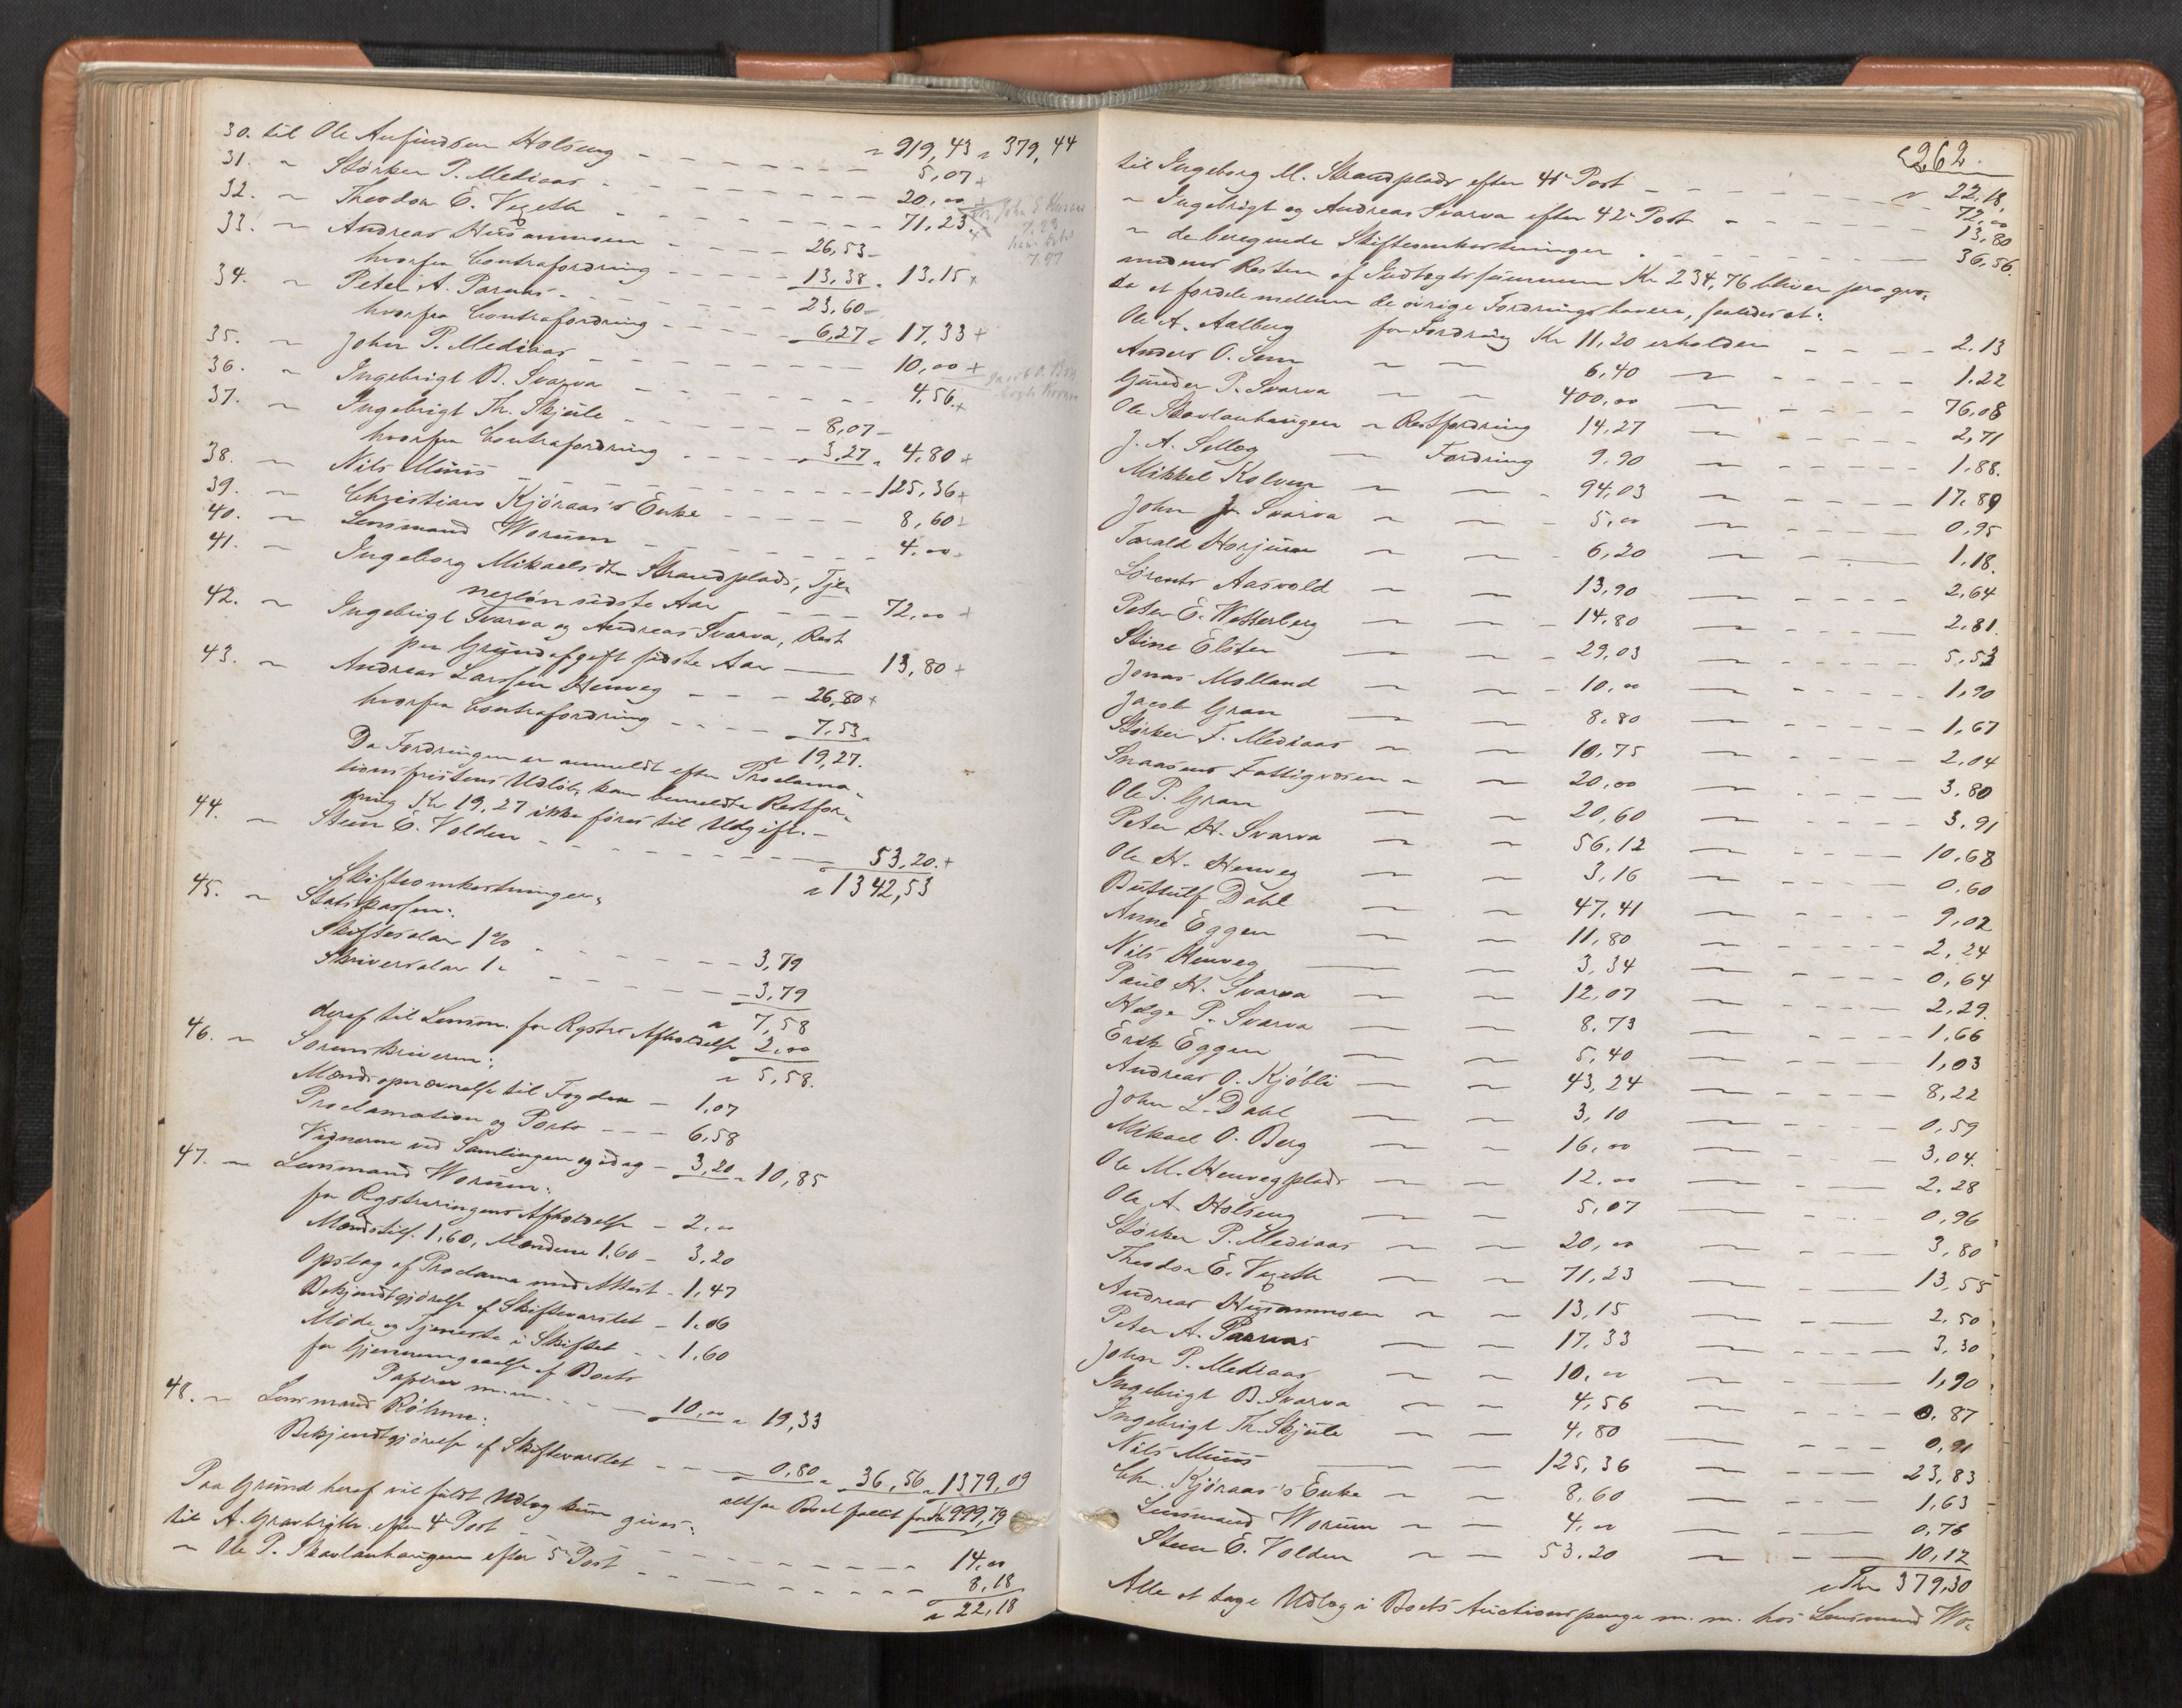 30. til Ole Anfindsen Holseng - - - - - " 919,43 " 379,44
5,07 +
31. " Størker P. Mediaas - - - - - 20,00 +
32. " Theodor E. Vegseth - - - - - 71,23 +
33. " Andreas Husammoen - - - 26,53
hvorfra Contrafordring - - - 13,38 " 13,15 +
34. " Peter A. Parnas - - - 23,60
hvorfra Contrafordring - - - 6,27 " 17,33 +
35. " John P. Mediaas - - - - 10,00 +
36. " Ingebrigt B. Svarva - - - - 4,56 +
37. " Ingebrigt Th. Skjule - - - 8,07
hvorfra Contrafordring - - - 3,27 " 4,80 +
38. " Nils Muus - - - - 125,36 +
39. " Christian Kjøraas's Enke - - - 8,60 +
40. " Lensmand Worum - - - 4,00
41. " Ingeborg Mikaelsdtr Strandplads, Tje-
nesløn sidste Aar - - - 72,00 +
42. " Ingebrigt Svarva og Andreas Svarva, Rest
paa Grundafgift sidste Aar — 13,80 +
43. " Andreas Larssen Hemveg - - - 26,80 +
hvorfra Contrafordring - - - 7,53
" 19,27.
Da Fordringen er anmeldt efter Proclama-
tionsfristens Udløb, kan bemeldte Restfor-
dring Kr 19,27 ikke føres til Udgift. -
44. " Steen E. Volden - - - - 53,20. +
" 1342,53
Skifteomkostninger,
45. " Statskassen:
Skiftesalær 1% - - - 3,79
Skriversalær 1 " - - - 3,79
" 7,58
deraf til Lensm. for Rgstrs Afholdelse 2,00
" 5,58.
46. " Sorenskriveren:
Mændsopnævnelse til Fogden - 1,07
Proclamation og Porto - - - 6,58
Vidnerne ved Samlingen og idag - 3,20 " 10,85
47. " Lensmand Worum:
for Registreringens Afholdelse - 2,00
Mændstils. 1,60, Mændene 1.60 - 3,20
Opslag af Proclama med Attest - 1,47
Bekjendtgjørelse af Skiftevarslet - 1.06
Møde og Tjeneste i Skiftet - - 1,60
for Gjennemgaaelse af Boets
Papirer m.m. - - - 10,00 " 19,33
48. " Lensmand Röhme:
Bekjendtgjørelse af Skiftevarslet - - - 0,80 " 36,56 " 1379,09
altsaa Boet fallit for Kr 999,79
Paa Grund heraf vil fuldt Udlæg kun gives:
til A. Gravbrøth. efter 4de Post - - - - 14,00
" Ole P. Skavlanhaugen efter 5te Post - - - - 8,18
" 22,18
262.
til Ingeborg M. Strandplads efter 41de Post - - - " 22,18,
72,00
" Ingebrigt og Andreas Svarva efter 42de Post - - - 13,80
" de beregnede Skifteomkostninger - - - 36,56.
medens Resten af Indtægtssummen Kr 234,76 bliver pro qvo-
ta at fordele mellem de øvrige Fordringshavere, saaledes at:
Ole A. Aalberg for Fordring Kr 11,20 erholder - - - 2,13
Anders O. Sem " " 6,40 " - - - 1.22
Gunder P. Svarva " " 400,00 — - - - 76,08
Ole Skavlanhaugen " Restfordring 14,27 — - - - 2,71
J. A. Selleg — Fordring 9,90 — - - - 1,88.
Mikkel Kolveg " — 94,03 — - - - 17,89
John J. Svarva " — 5,00 — - - - 0,95
Tarald Horjuen — — 6,20 — - - - 1,18.
Lorents Aasvold " " 13,90 — - - - 2,64
Peter E. Wetterberg — — 14,80 — - - - 2,81.
Stine Elsten — " 29,03 — - - - 5,53
Jonas Molland — — 10,00 — - - - 1,90
Jacob Gran — — 8,80 — - - - 1,67
Størker F. Mediaas " — 10,75 — - - - 2,04
Snaasens Fattigvæsen " — 20,00 — - - - 3,80
Ole P. Gran — — 20,60 — - - - 3,91
Peter H. Svarva — — 56,12 — - - - 10,68
Ole H. Hemveg " — 3,16 — - - - 0,60
Buttulf Dahl — " 47,41 — - - - 9,02
Anne Eggen — " 11,80 — - - - 2,24
Nils Hemveg — — 3,34 — - - - 0,64
Paul H. Svarva — — 12,07 — - - - 2,29.
Helge P. Svarva — — 8,73 — - - - 1,66
Erik Eggen — — 5,40 — - - - 1,03
Andreas O. Kjøbli — — 43,24 — - - - 8,22
John L. Dahl — — 3,10 — - - - 0,59
Mikael O. Berg — — 16,00 — - - - 3,04.
Ole M. Hemvegplads — — 12,00 — - - - 2,28
Ole A. Holseng — — 5,07 — - - - 0,96
Størker P. Mediaas — — 20,00 — - - - 3,80
Theodor E. Vegseth — " 71,23 — - - - 13,55
Andreas Husammoen " " 13,15 — - - - 2,50
Peter A. Parnas — — 17,33 — - - - 3,30
John P. Mediaas — " 10,00 — - - - 1,90
Ingebrigt B. Svarva — — 4,56 — - - - 0,87
Ingebrigt Th. Skjule — — 4,80 — - - - 0,91
Nils Muus — — 125,36 — - - - 23,83
Chr. Kjøraas's Enke — — 8,60 — - - - 1,63
Lensmand Worum — — 4,00 — - - - 0,76
Steen E. Volden " — 53,20 — - - - 10,12
" Kr 379,30
Alle at tage Udlæg i Boets Auctionspenge m. m. hos Lensmand Wo-